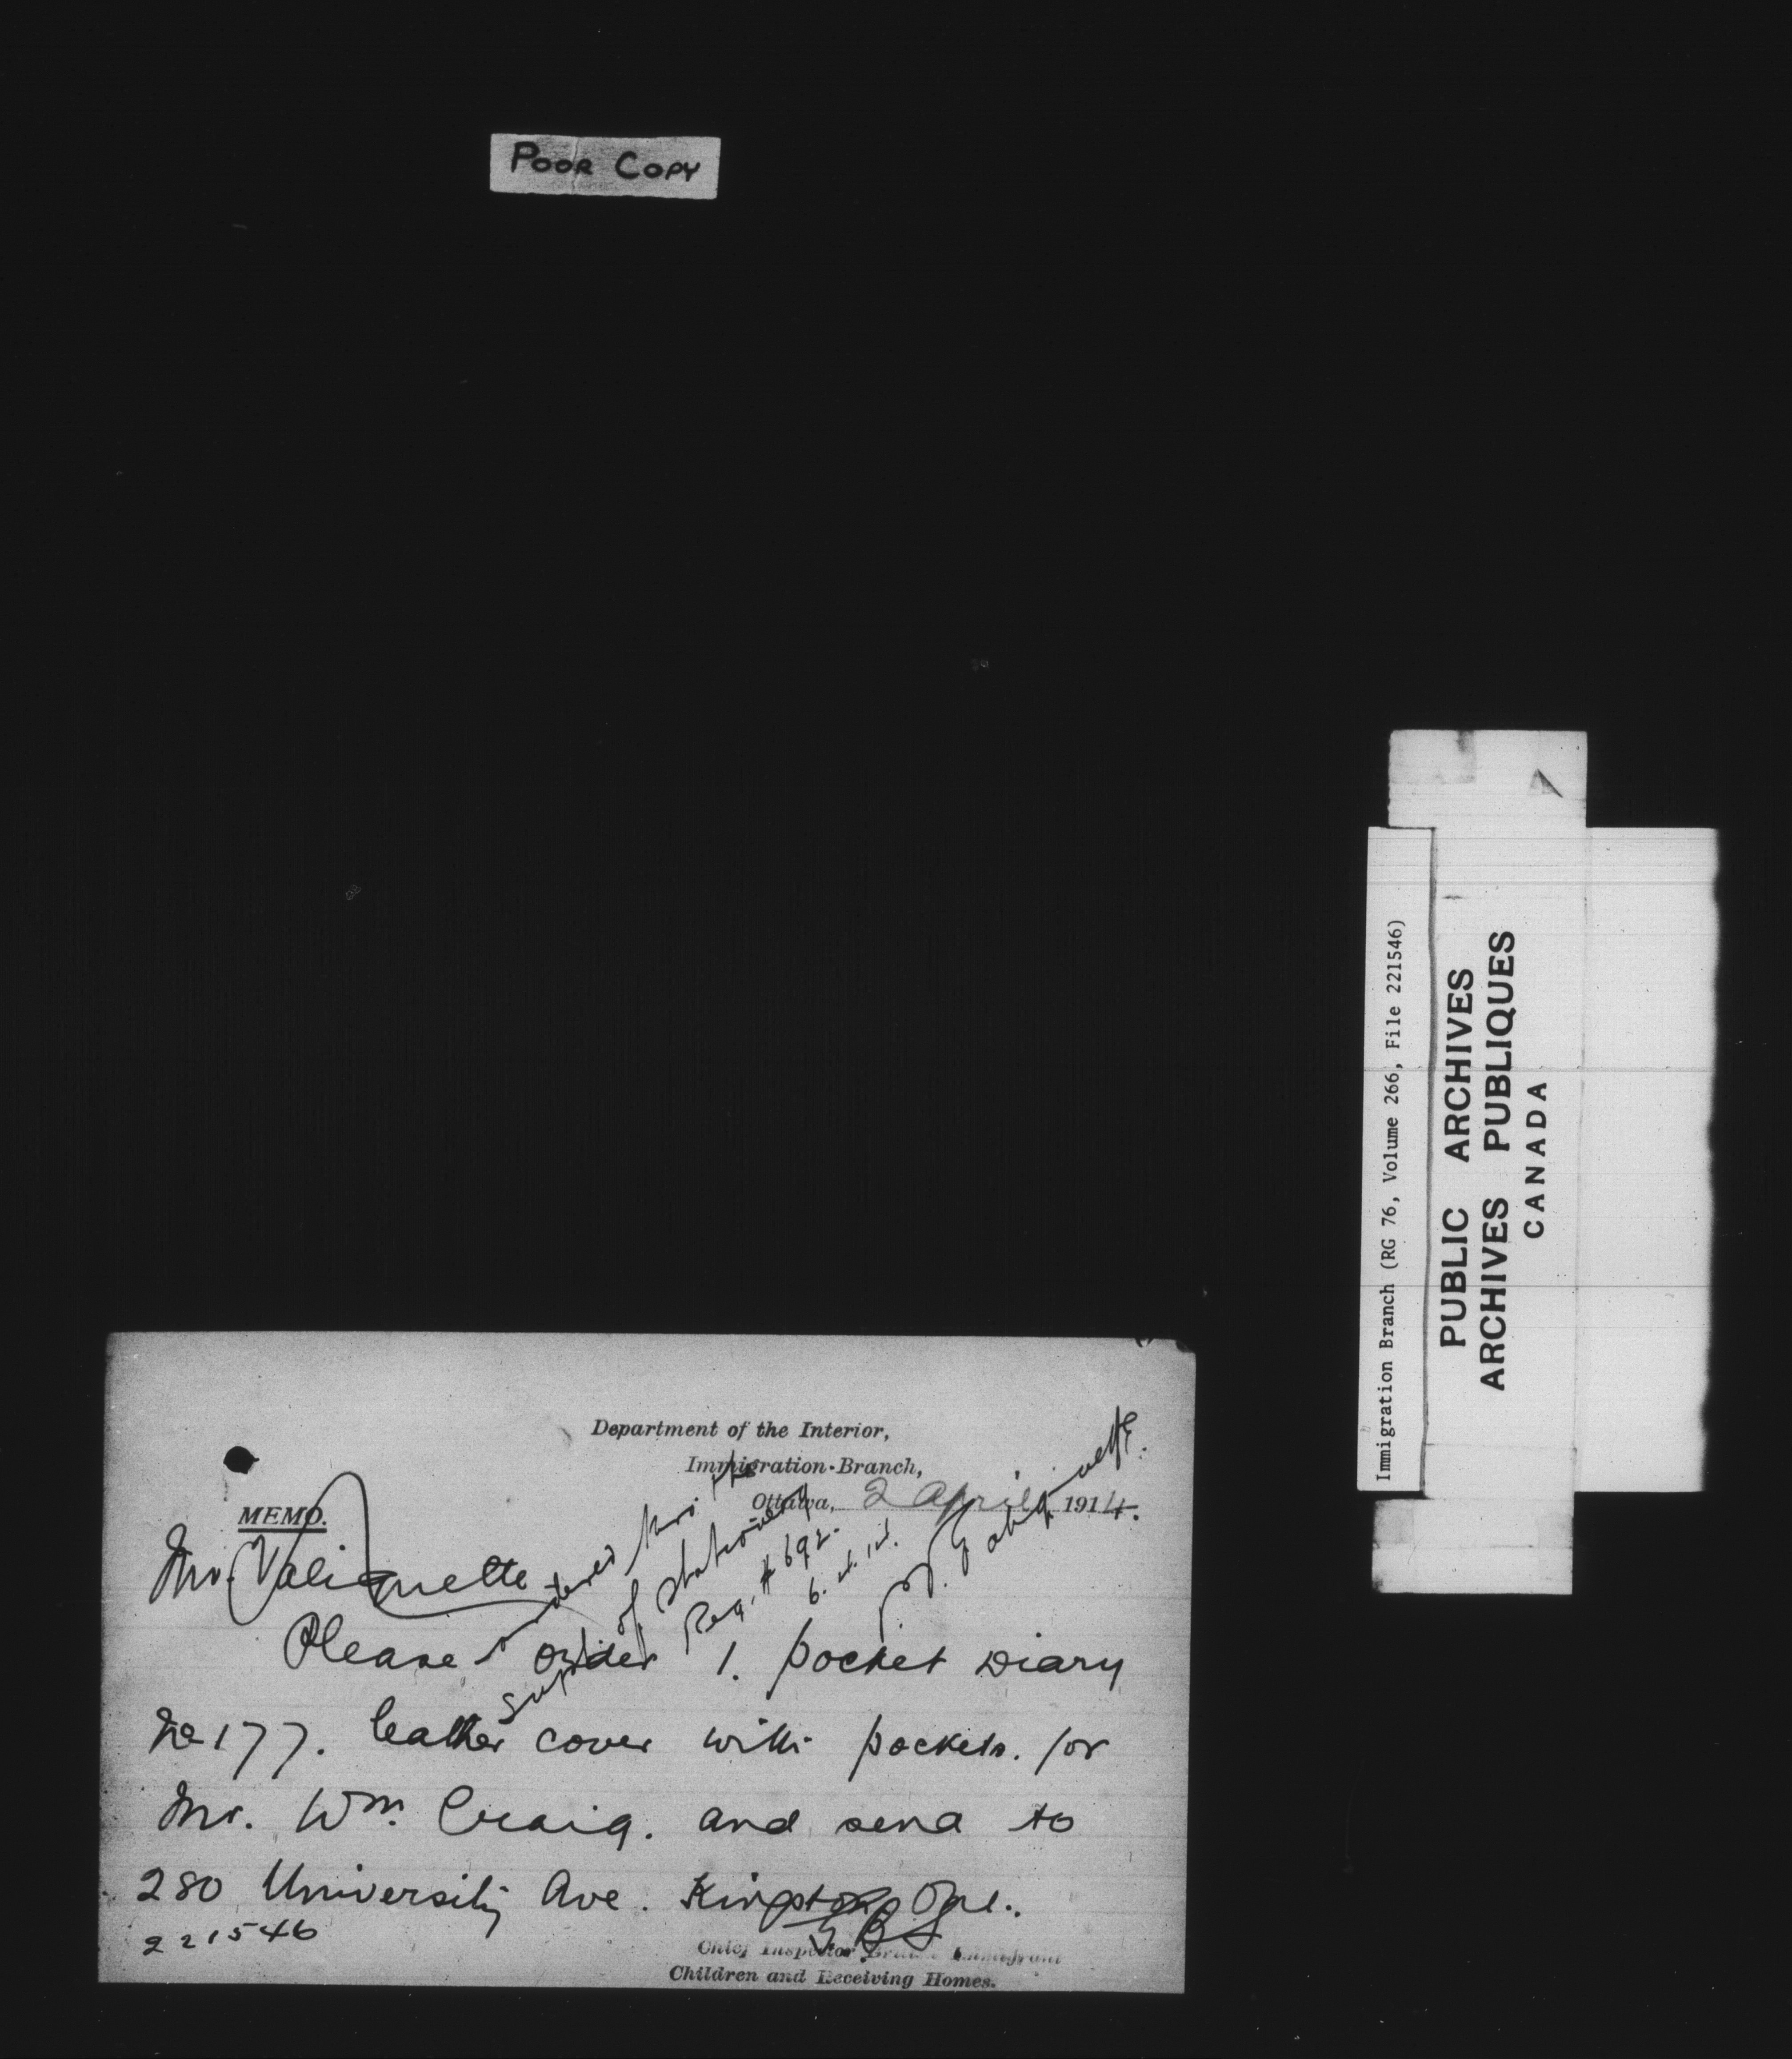 POOR COPY
Department of the Interior,
Immigration-Branch,
Ottawa, 2 April 1914.
MEMO.
Mr. Valiquette
Please order 1. pocket Diary
No 177. leather cover with pockets. for
Mr. Wm. Craig. and send to
280 University Ave. Kingston Ont.
221546
G.B.S.
Chief Inspector British Immigrant
Children and Receiving Homes.
ordered thro' the
Supt. of Stationery
Req. # 692.
6. 4. 14.
Valiquette.
Immigration Branch (RG 76, Volume 266, File 221546)
PUBLIC ARCHIVES
ARCHIVES PUBLIQUES
CANADA